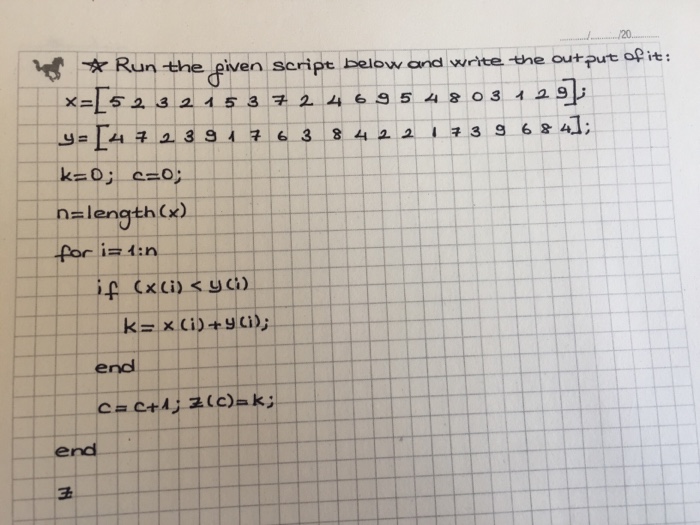 / /20
☆ Run the given script below and write the output of it:
x=[5 2 3 2 1 5 3 7 2 4 6 9 5 4 8 0 3 1 2 9];
y=[4 7 2 3 9 1 7 6 3 8 4 2 2 1 7 3 9 6 8 4];
k=0; c=0;
n=length(x)
for i=1:n
if (x(i)<y(i)
k=x(i)+y(i);
end
c=c+1; z(c)=k;
end
z